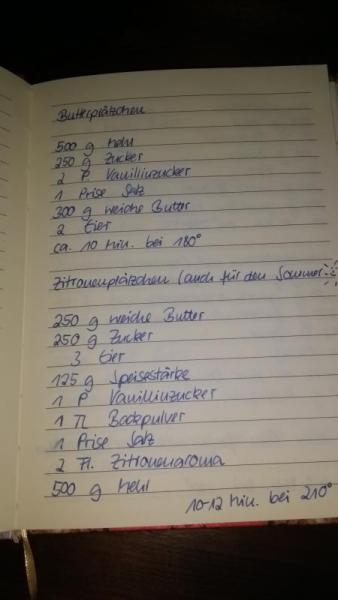 Butterplätzchen
500 g Mehl
250 g Zucker
2 P. Vanillinzucker
1 Prise Salz
300 g weiche Butter
2 Eier
ca. 10 Min. bei 180°
Zitronenplätzchen (auch für den Sommer
250 g weiche Butter
250 g Zucker
3 Eier
125 g Speisestärke
1 P Vanillinzucker
1 TL Backpulver
1 Prise Salz
2 Fl. Zitronenaroma
500 g Mehl
10-12 Min. bei 210°